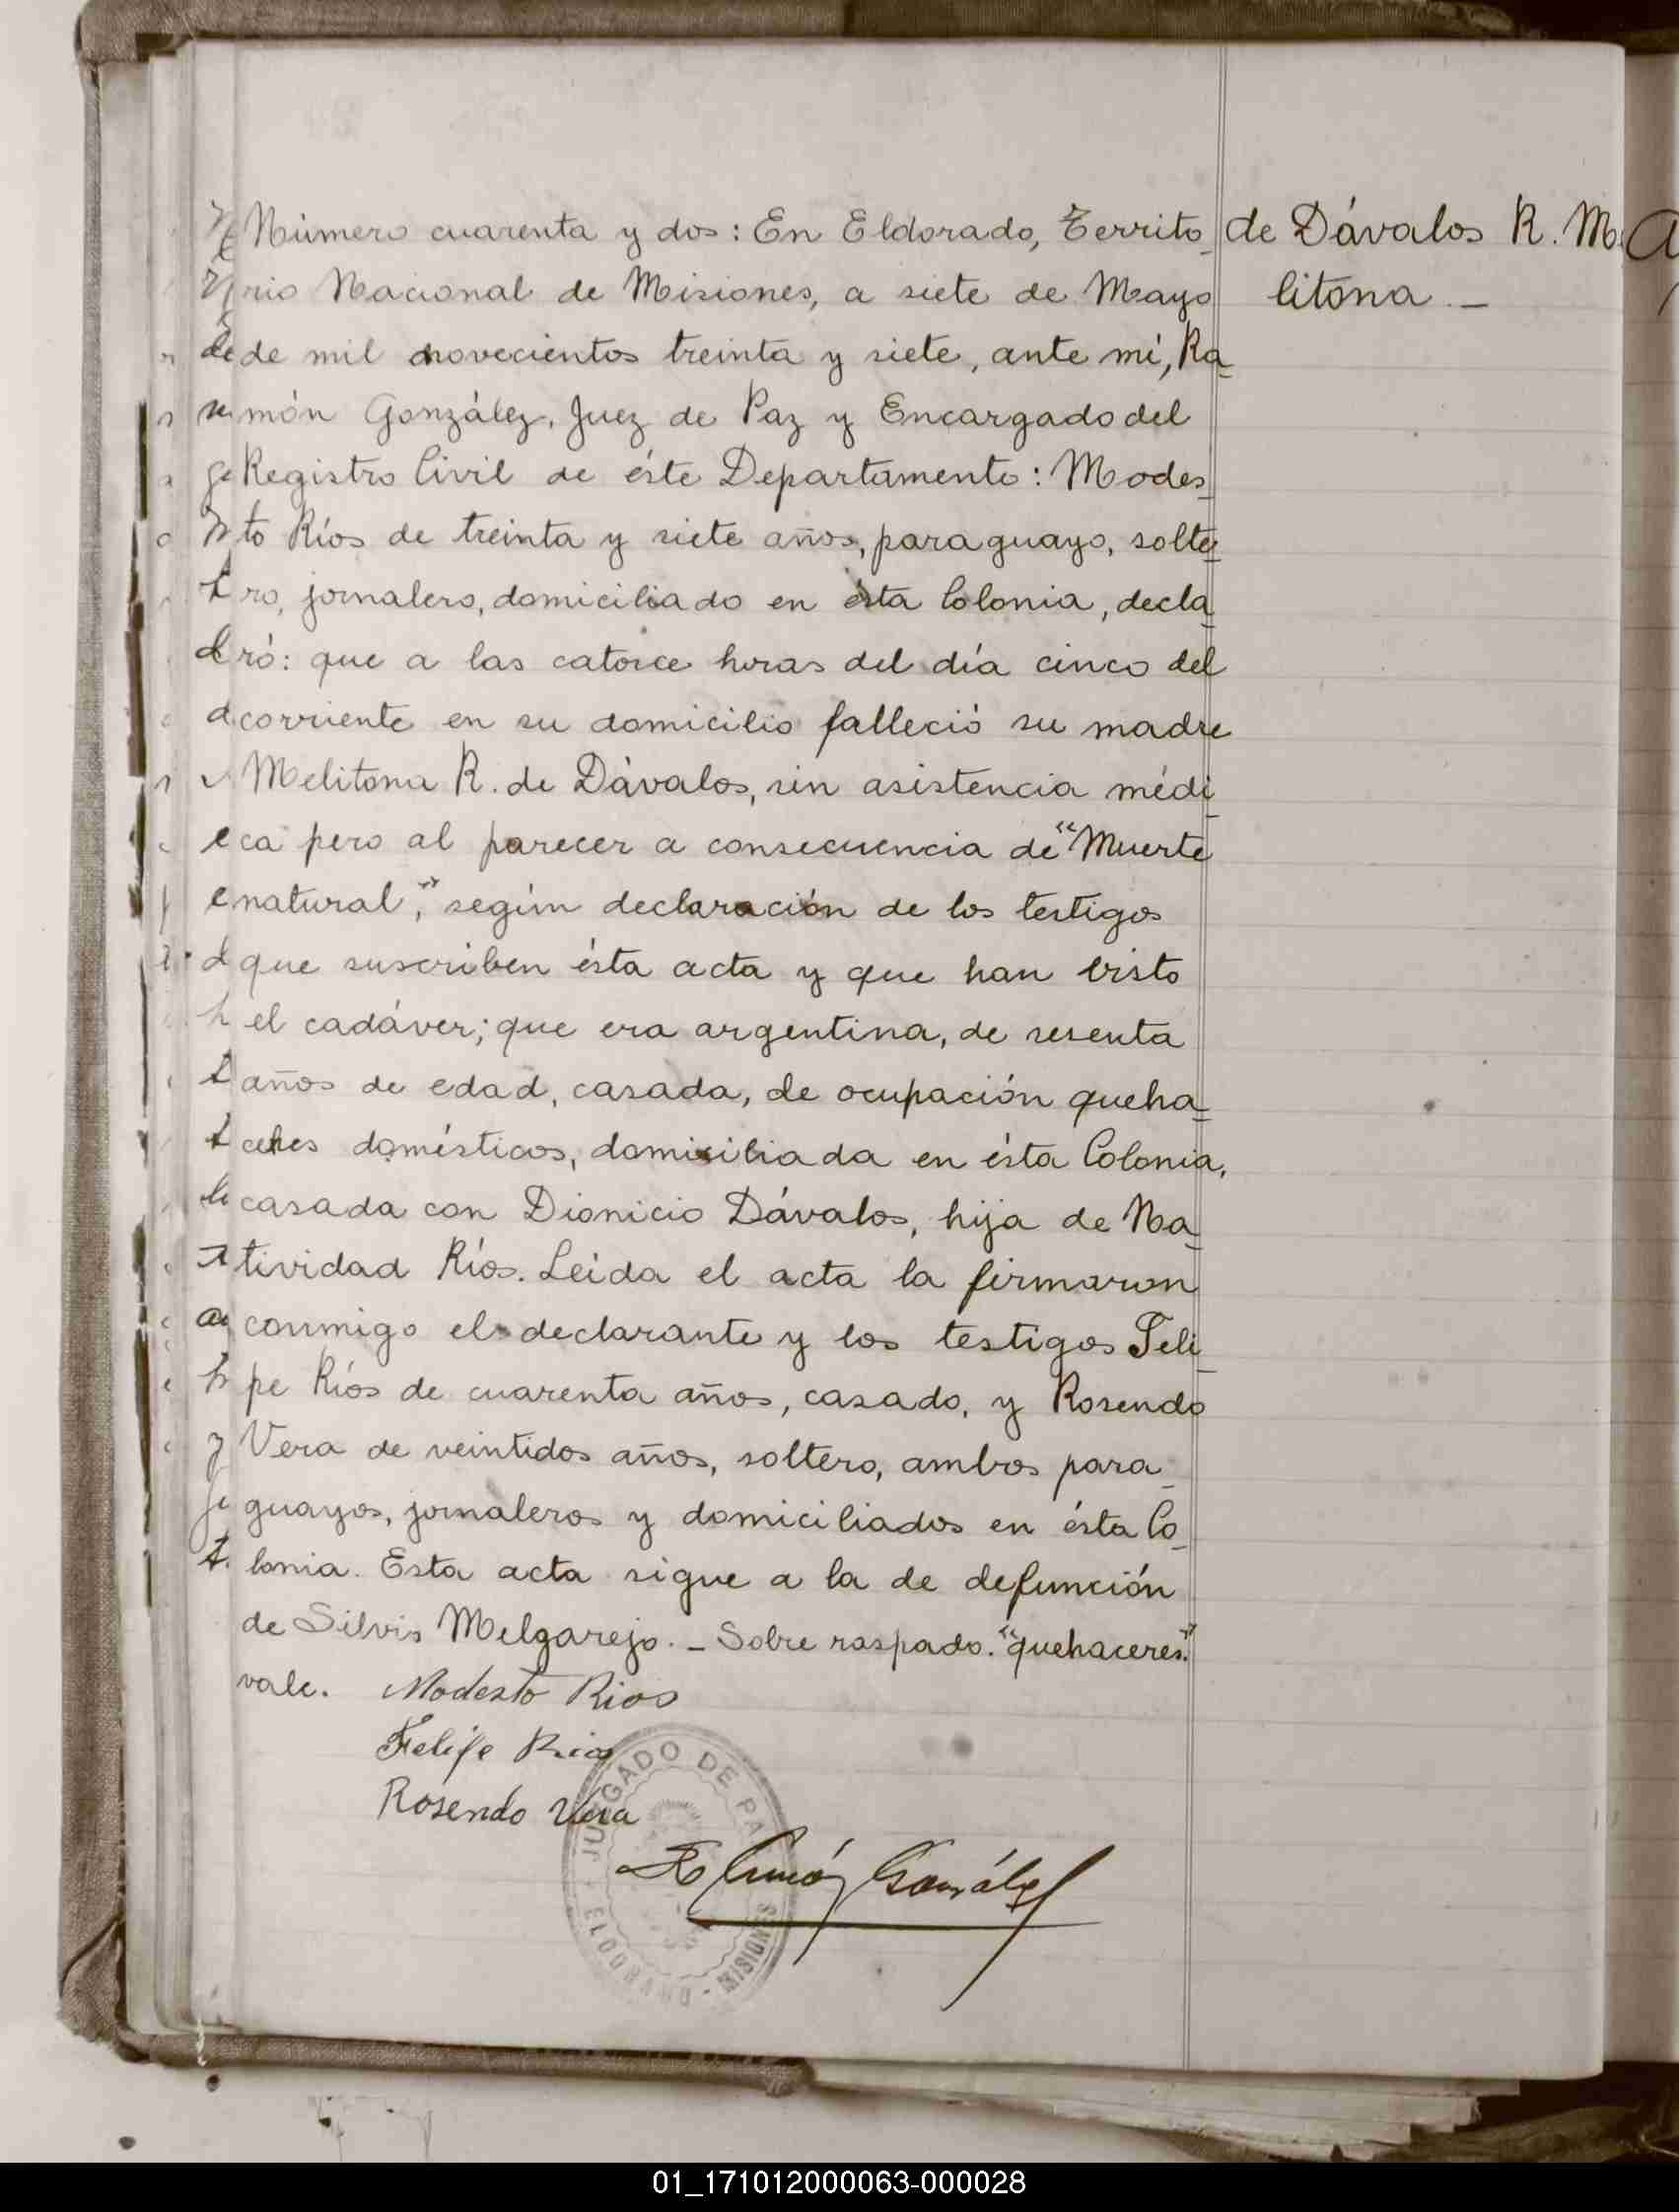 Número cuarenta y dos: En Eldorado, Territo_
rio Nacional de Misiones, a siete de Mayo
de mil novecientos treinta y siete, ante mí, Ra_
món González, Juez de Paz y Encargado del
Registro Civil de éste Departamento: Modes_
to Ríos de treinta y siete años, paraguayo, solte_
ro, jornalero, domiciliado en ésta Colonia, decla_
ró: que a las catorce horas del día cinco del
corriente en su domicilio falleció su madre
Melitona R. de Dávalos, sin asistencia médi_
ca pero al parecer a consecuencia de "Muerte
natural", según declaración de los testigos
que suscriben ésta acta y que han visto
el cadáver; que era argentina, de sesenta
años de edad, casada, de ocupación queha_
ceres domésticos, domiciliada en ésta Colonia,
casada con Dionicio Dávalos, hija de Na_
tividad Ríos. Leída el acta la firmaron
conmigo el declarante y los testigos Feli_
pe Ríos de cuarenta años, casado, y Rosendo
Vera de veintidos años, soltero, ambos para_
guayos, jornaleros y domiciliados en ésta Co_
lonia. Esta acta sigue a la de defunción
de Silvis Melgarejo. - Sobre raspado. "quehaceres."
vale.
Modesto Rios
Felipe Rios
Rosendo Vera
Ramón González
JUZGADO DE PAZ
ELDORADO - MISIONES
de Dávalos R. Me
litona. -
01_171012000063-000028